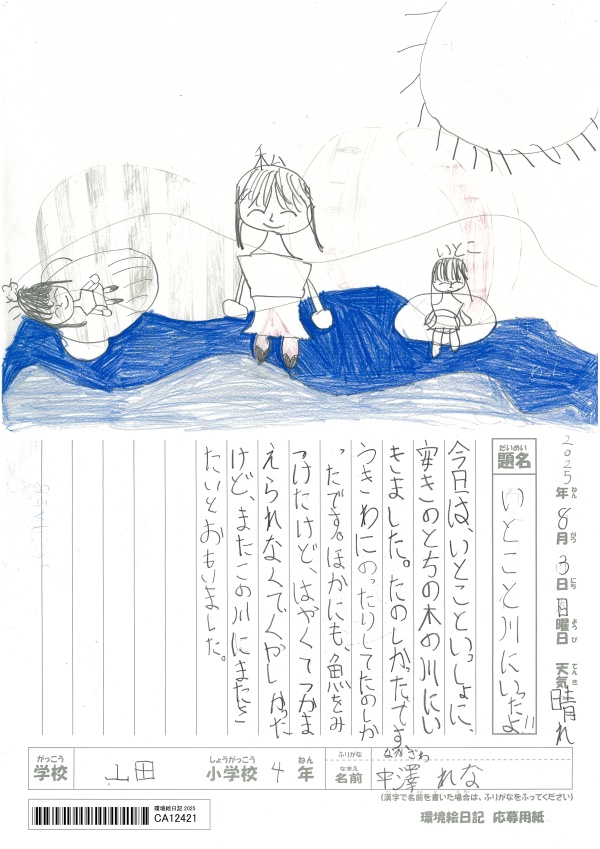 私
いとこ
2025年8月3日日曜日 天気晴れ
題名 いとこと川にいったよ!!
今日は、いとこといっしょに、
空きのとちの木の川にい
きました。たのしかったです
うきわにのったりしてたのしか
ったです。ほかにも、魚をみ
つけたけど、はやくてつかま
えられなくてくやしかった
けど、またこの川にまたき
たいとおもいました。
がっこう
学校 山田
しょうがっこう
小学校
4
ねん
年
ふりがな なかざわ
なまえ
名前 中澤 れな
(漢字で名前を書いた場合は、ふりがなをふってください)
環境絵日記 2025
CA12421
環境絵日記 応募用紙